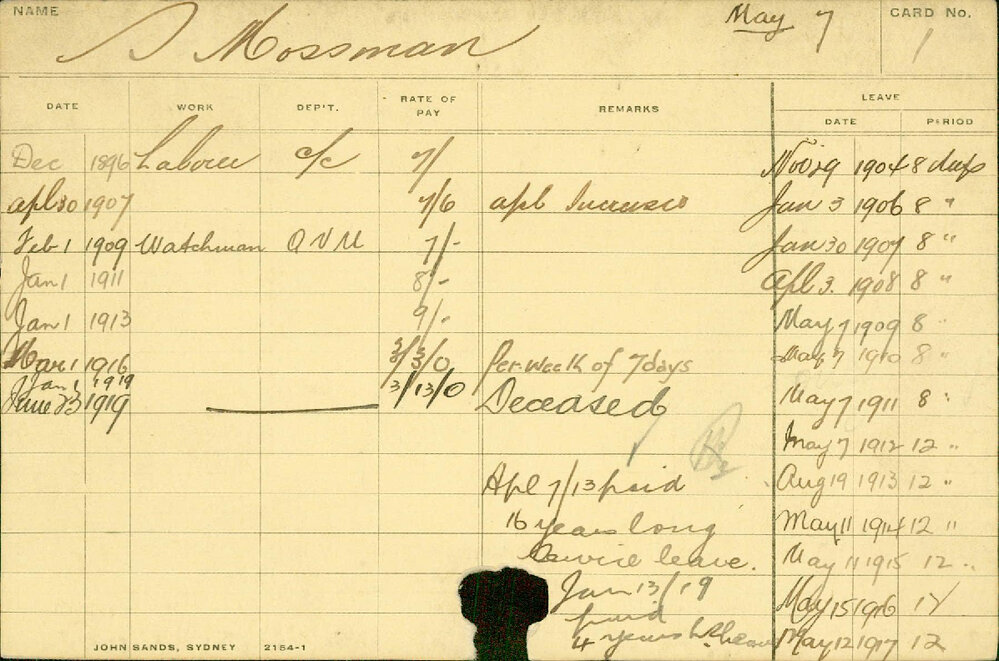 NAME S Mossman May 7 CARD No. 1
DATE WORK DEP'T. RATE OF PAY REMARKS LEAVE
DATE PERIOD
Dec 1896 Labourer c/c 7/ Nov 29 1904 8 days
apl 30 1907 7/6 apl Increase Jan 3 1906 8 "
Feb 1 1909 Watchman QVM 7/- Jan 30 1907 8 "
Jan 1 1911 8/- Apl 3. 1908 8 "
Jan 1 1913 9/- May 7 1909 8 "
Mar 1 1916 3/3/0 Per Week of 7 days May 7 1910 8 "
Jan 1 1919 3/13/0
June 23 1919 Deceased May 7 1911 8 "
May 7 1912 12 "
Apl 7/13 paid Aug 19 1913 12 "
16 years long May 11 1914 12 "
Service leave. May 11 1915 12 "
Jan 13/19 May 15 1916 12
paid
4 years May 12 1917 12
JOHN SANDS, SYDNEY 2154-1